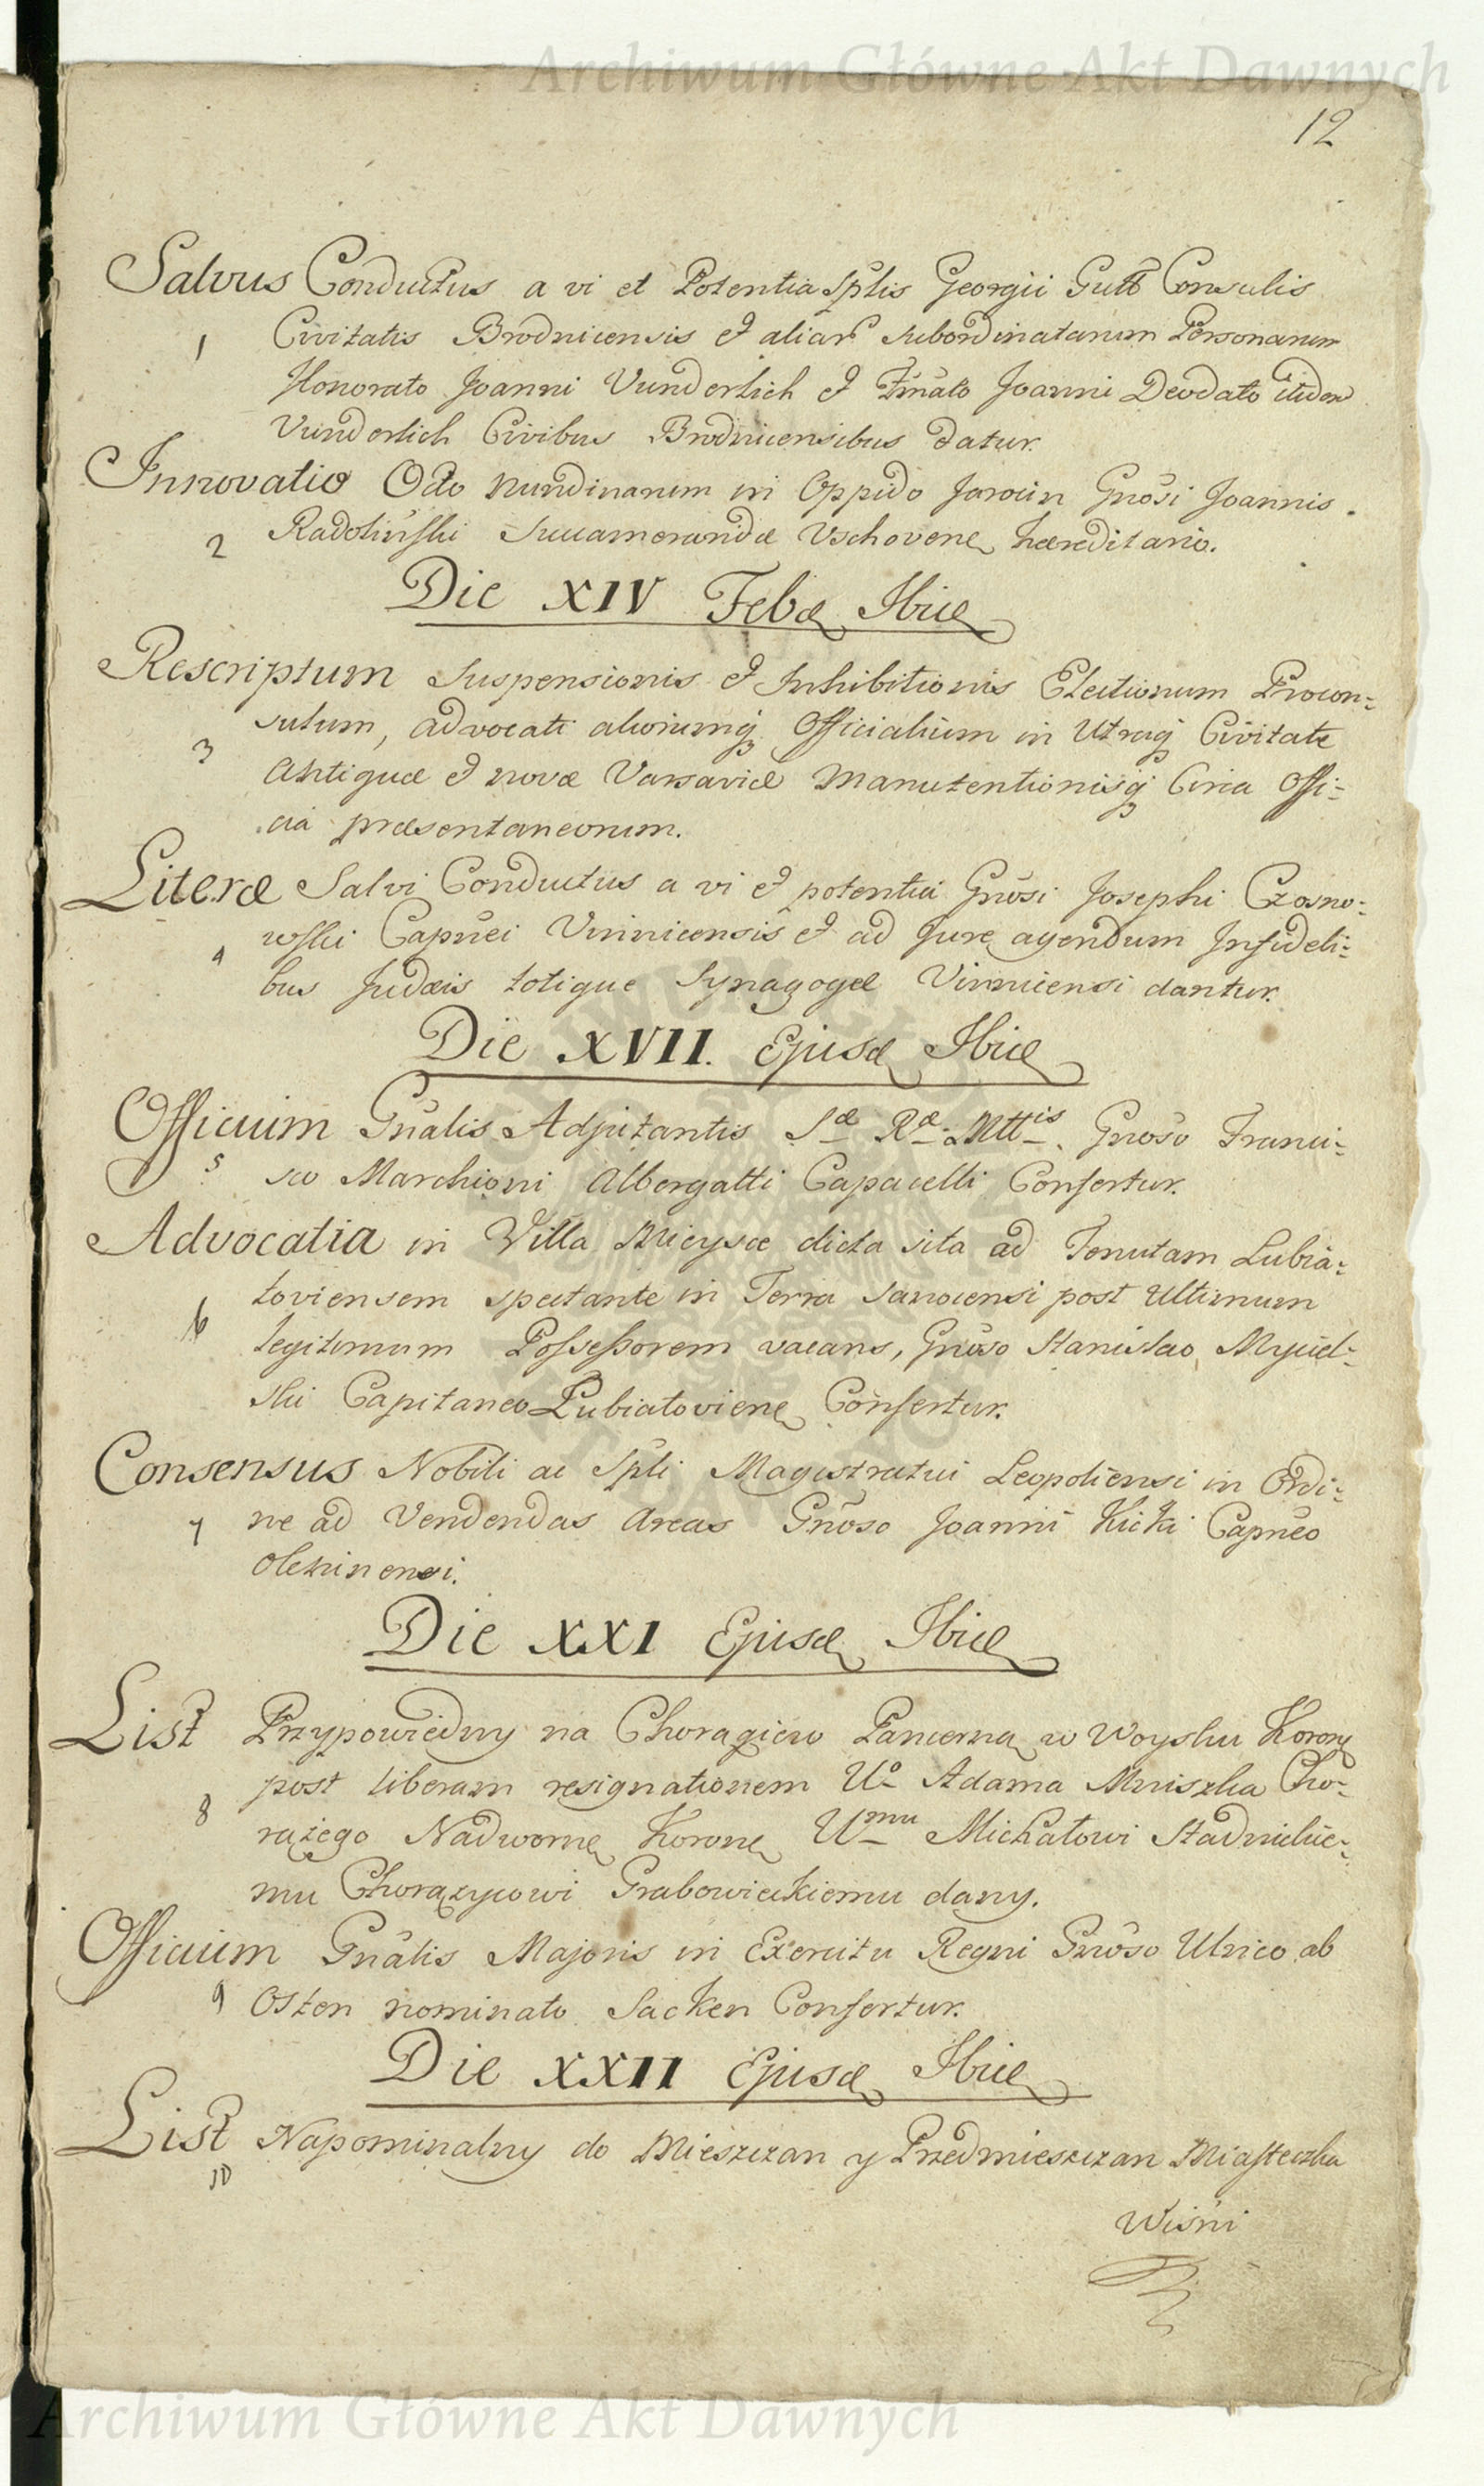 Archiwum Główne Akt Dawnych
12
Salvus Conductus a vi et Potentia Spttis Georgii Gutt Consulis
1 Civitatis Brodnicensis et aliar subordinatarum Personarum
Honorato Joanni Vunderlich et Fmato Joanni Deodato itidem
Vunderlich Civibus Brodnicensibus datur.
Innovatio Octo Nundinarum in Oppido Jarocin Gnosi Joannis
2 Radolinski Succameraridæ Vschovene hæreditario.
Die XIV Febæ Ibid
Rescriptum Suspensionis et Inhibitionis Electionum Procon:
3 sulum, advocati aliorumq Officialium in Utraq Civitate
Antiquæ et novæ Varsaviæ Manutentionisq Circa Offi:
cia præsentaneorum.
Literæ Salvi Conductus a vi et potentia Gnosi Josephi Czosno:
4 wski Capnei Vinnicensis et ad Jure agendum Infideli:
bus Judæis totique Synagogæ Vinnicensi dantur.
Die XVII. Ejusd Ibid
Officium Gnalis Adjutantis Sæ Ræ Mttis Gnoso Franci:
5 sco Marchioni Albergatti Capacelli Confertur.
Advocatia in Villa Micysce dicta sita ad Tenutam Lubia:
6 toviensem spectante in Terra Sanocensi post Ultimum
legitimum Possessorem vacans, Gnoso Stanislao Myciel:
ski Capitaneo Lubiatoviene Confertur.
Consensus Nobili ac Spli Magistratui Leopoliensi in Ordi:
7 ne ad Vendendas Areas Gnoso Joanni Kicki Capneo
Olchinensi.
Die XXI Ejusd Ibid
List Przypowiedny na Chorągiew Pancerną w Woysku Korony
post liberam resignationem Uo Adama Mniszka Cho:
8 rążego Nadworne Korone Umu Michałowi Stadnickie:
mu Chorążycowi Grabowieckiemu dany.
Officium Gnalis Majoris in Exercitu Regni Gnoso Ulrico ab
9 Osten nominato Sacken Confertur.
Die XXII Ejusd Ibid
List Napominalny do Mieszczan y Przedmieszczan Miasteczka
10
Wisni
Archiwum Główne Akt Dawnych